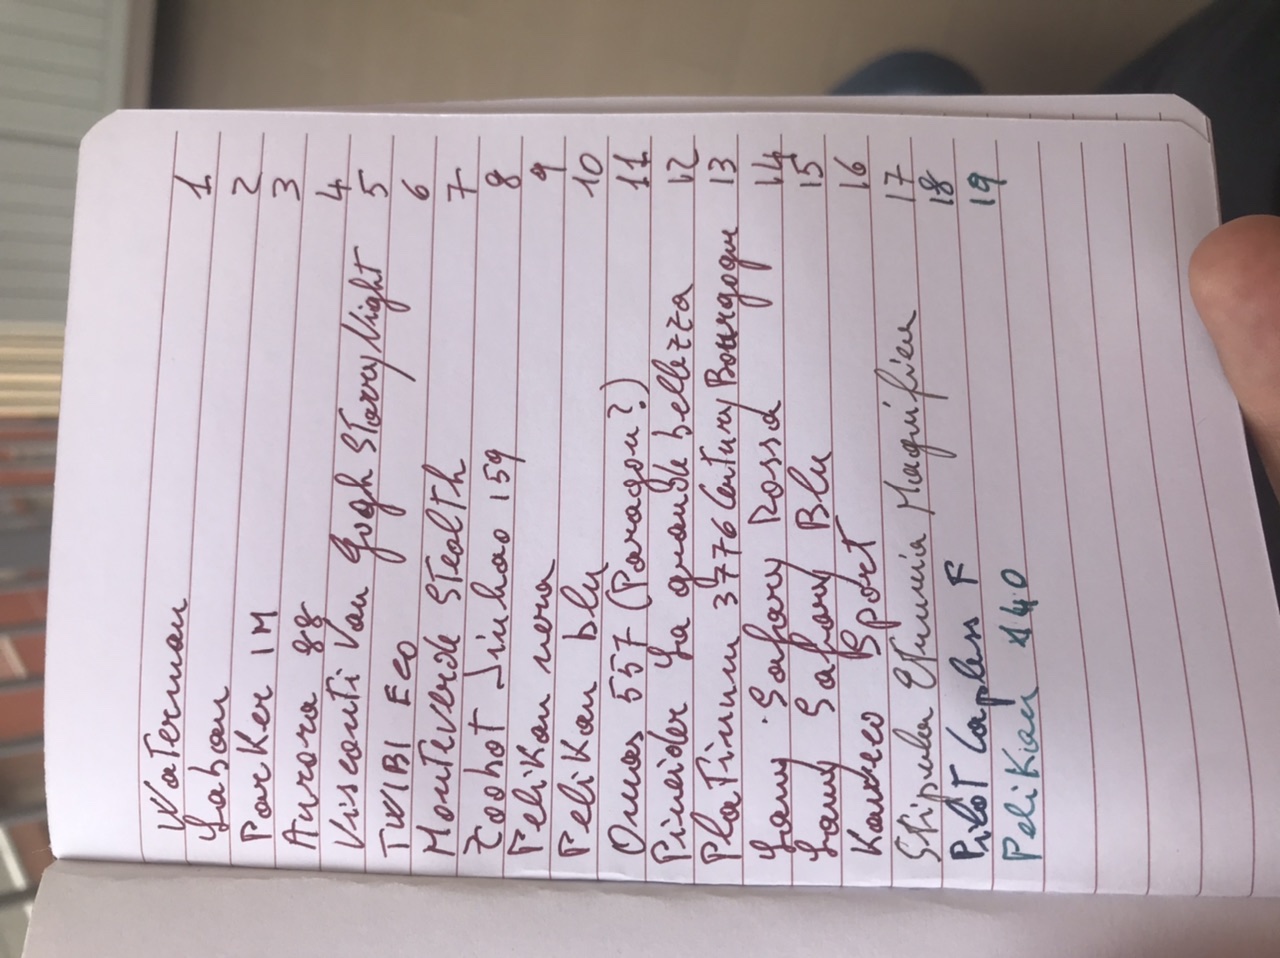 Waterman 1
Laban 2
Parker IM 3
Aurora 88 4
Visconti Van Gogh Starry Night 5
TWIBI ECO 6
Monteverde Stealth 7
Zoohot Jinhao 159 8
Pelikan nera 9
Pelikan blu 10
Omas 557 (Paragon?) 11
Pineider La grande bellezza 12
Platinum 3776 Century Bourgogne 13
Lamy Safary Rossa 14
Lamy Safary Blu 15
Kaweco Sport 16
Stipula Etruria Magnifica 17
Pilot Capless F 18
Pelikan 140 19